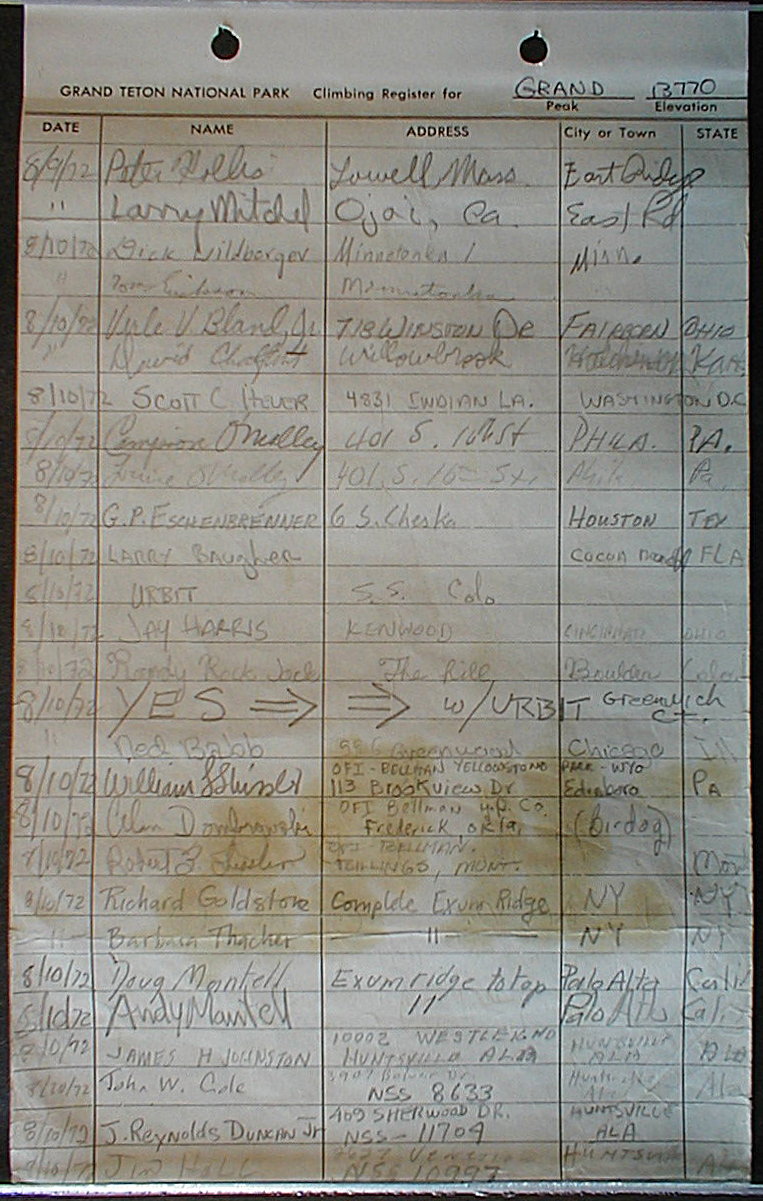 GRAND TETON NATIONAL PARK Climbing Register for GRAND 13770
Peak Elevation
DATE NAME ADDRESS City or Town STATE
8/9/72 Peter Hollis Lowell Mass. East Ridge
" Larry Mitchel Ojai, Ca. East Rd
8/10/72 Dick Wildberger Minnetonka Minn.
" Tom Erickson Minnetonka
8/10/72 Verle V. Bland, Jr. 718 WINSTON DR FAIRBORN OHIO
" David Willowbrook Kan.
8/10/72 SCOTT C. HEUER 4831 INDIAN LA. WASHINGTON D.C
8/10/72 Campion O'Malley 401 S. 16th St PHILA. PA.
8/10/72 O'Malley 401. S. 16th St. Phila Pa.
8/10/72 G.P. ESCHENBRENNER 6 S. Cheska HOUSTON TEX
8/10/72 LARRY Baugher COCOA FLA
8/10/72 URBIT S.S. Colo
8/10/72 JAY HARRIS KENWOOD CINCINNATI OHIO
8/10/72 Randy Rock Jock The Hill Boulder Colo
8/10/72 YES ⇒ ⇒ w/URBIT Greenwich CT.
" Ned Babb Greenwood Chicago Ill
OFI - BELLMAN YELLOWSTONE PARK - WYO
8/10/72 William 113 Brookview Dr Edinboro PA
OFI Bellman u.p. Co.
8/10/72 Alan Dombrowski Frederick, okla. (Birdog)
8/10/72 Robert BELLMAN.
BILLINGS, MONT. Mont
8/10/72 Richard Goldstone Complete Exum Ridge NY NY
" Barbara Thacher " NY NY
8/10/72 Doug Mantell Exum ridge to top Palo Alto Calif
8/10/72 Andy Mantell " Palo Alto Cal.
10002 WESTLEIGND HUNTSVILLE
8/10/72 JAMES H JOHNSTON HUNTSVILLE ALA ALA ALA
8/10/72 John W. Cole NSS 8633 Huntsville Ala
409 SHERWOOD DR. HUNTSVILLE
8/10/72 J. Reynolds DUNCAN Jr NSS - 11709 ALA
8/10/72 JIM HALL NSS 10997 HUNTSVILLE